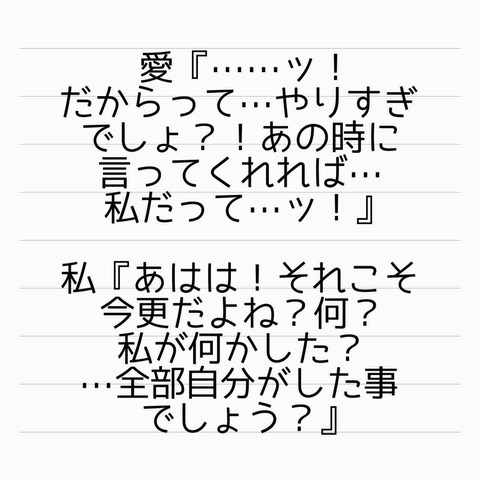 愛『……ッ！
だからって…やりすぎ
でしょ？！あの時に
言ってくれれば…
私だって…ッ！』
私『あはは！それこそ
今更だよね？何？
私が何かした？
…全部自分がした事
でしょう？』